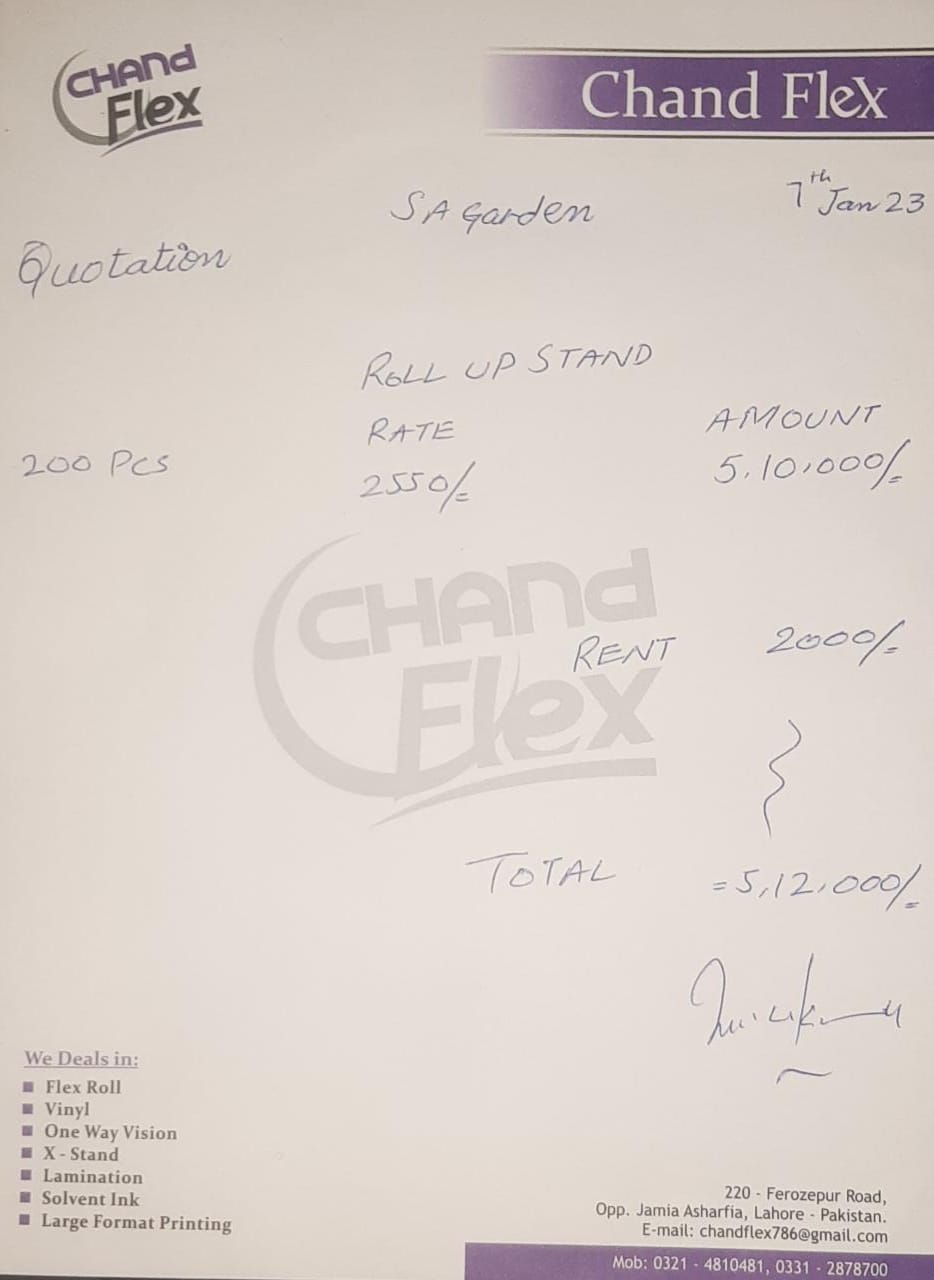 CHAND
Flex
Chand Flex
7th Jan 23
SA Garden
Quotation
ROLL UP STAND
RATE AMOUNT
200 Pcs 2550/= 5,10,000/=
CHAND
Flex
RENT 2000/=
TOTAL = 5,12,000/=
We Deals in:
Flex Roll
Vinyl
One Way Vision
X - Stand
Lamination
Solvent Ink
Large Format Printing
220 - Ferozepur Road,
Opp. Jamia Asharfia, Lahore - Pakistan.
E-mail: chandflex786@gmail.com
Mob: 0321 - 4810481, 0331 - 2878700